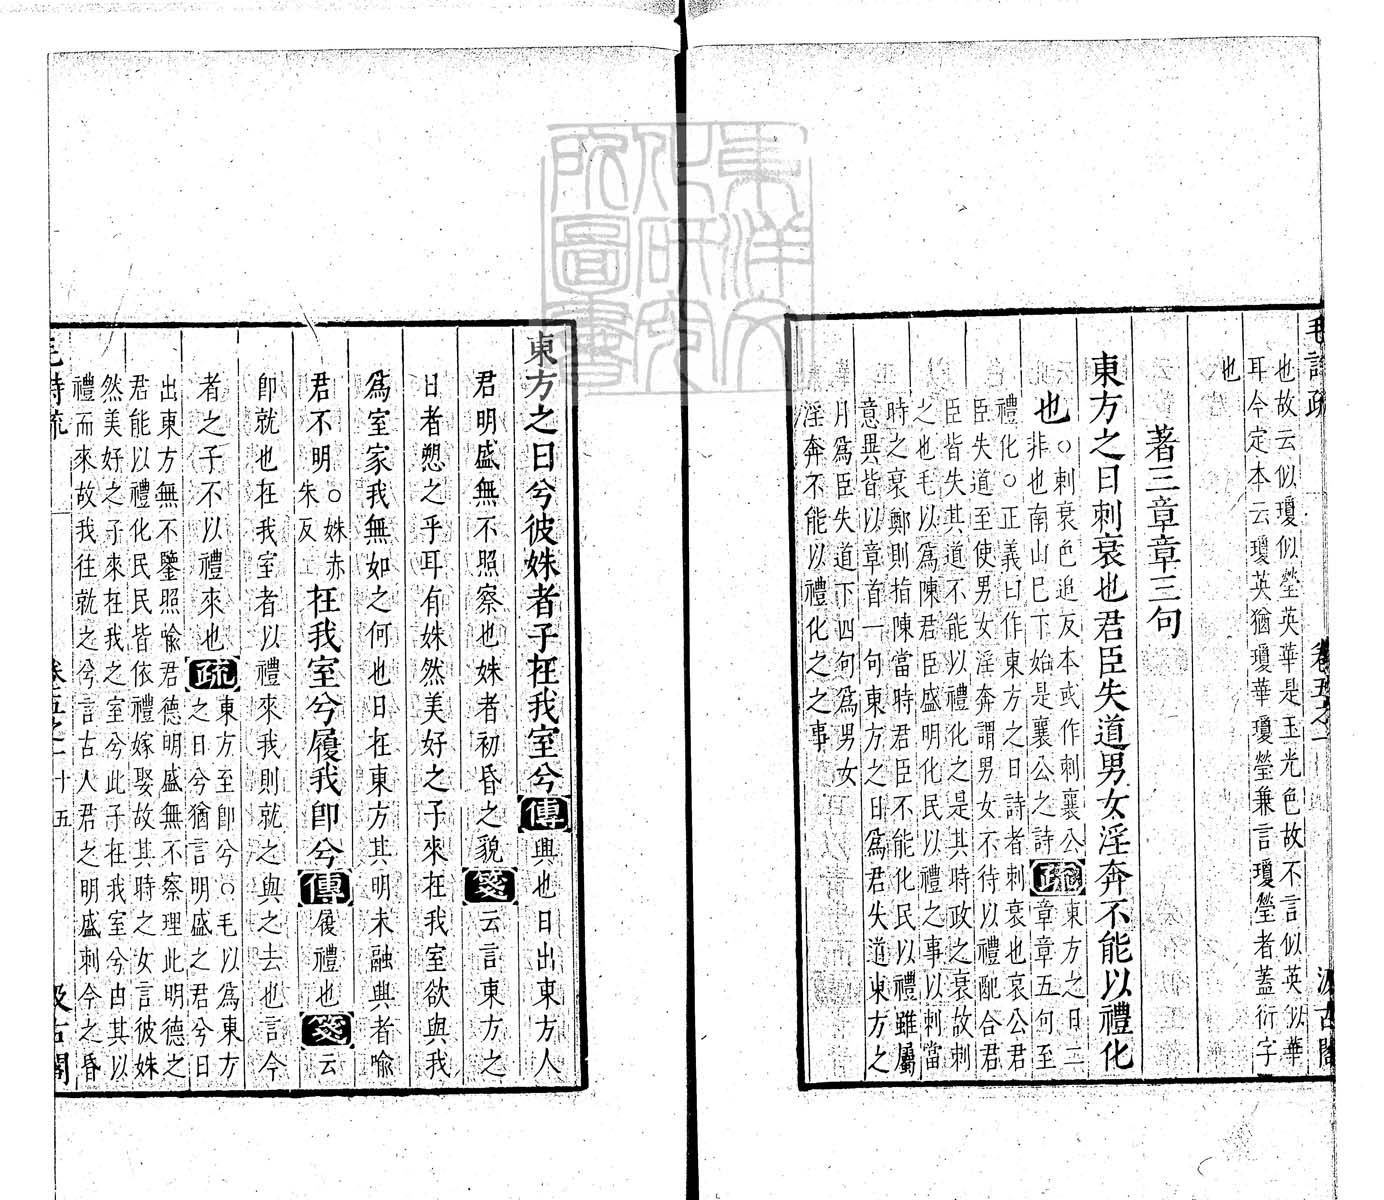 毛詩疏
卷五之一
汲古閣
也故云似瓊似瑩英華是玉光色故不言似英似華
耳今定本云瓊英猶瓊華瓊瑩兼言瓊瑩者蓋衍字
也
著三章章三句
東方之日刺衰也君臣失道男女淫奔不能以禮化
也
○刺衰色追反本或作刺襄公
非也南山巳下始是襄公之詩
疏
東方之日二
章章五句至
禮化○正義曰作東方之日詩者刺衰也哀公君
臣失道至使男女淫奔謂男女不待以禮配合君
臣皆失其道不能以禮化之是其時政之衰故刺
之也毛以為陳君臣盛明化民以禮之事以刺當
時之衰鄭則指陳當時君臣不能化民以禮雖屬
意異皆以章首一句東方之日為君失道東方之
月為臣失道下四句為男女
淫奔不能以禮化之之事
東方之日兮彼姝者子在我室兮傳興也日出東方人
君明盛無不照察也姝者初昏之貌箋云言東方之
日者愬之乎耳有姝然美好之子來在我室欲與我
為室家我無如之何也日在東方其明未融興者喻
君不明
○姝赤
朱反
在我室兮履我即兮傳履禮也箋云
即就也在我室者以禮來我則就之與之去也言今
者之子不以禮來也疏
東方至即兮○毛以為東方
之日兮猶言明盛之君兮日
出東方無不鑒照喻君德明盛無不察理此明德之
君能以禮化民民皆依禮嫁娶故其時之女言彼姝
然美好之子來在我之室兮此子在我室兮由其以
禮而來故我往就之兮言古人君之明盛刺今之昏
毛詩疏
卷五之一
十五
汲古閣
東洋文
化研究
所圖書